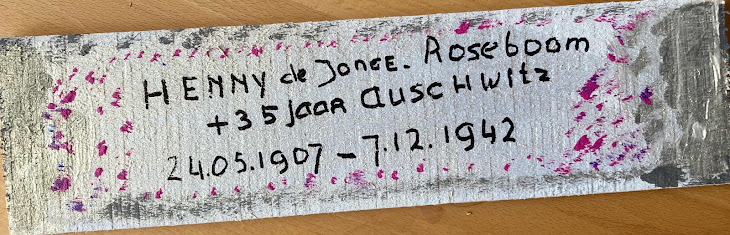 HENNY de JONGE. Roseboom
+35 jaar auscHwitz
24.05.1907 - 7.12.1942